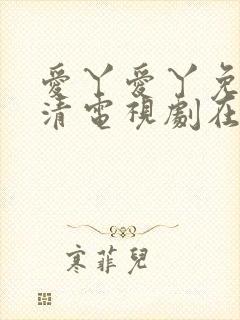 愛丫愛丫免
清電視劇在
寒菲兒